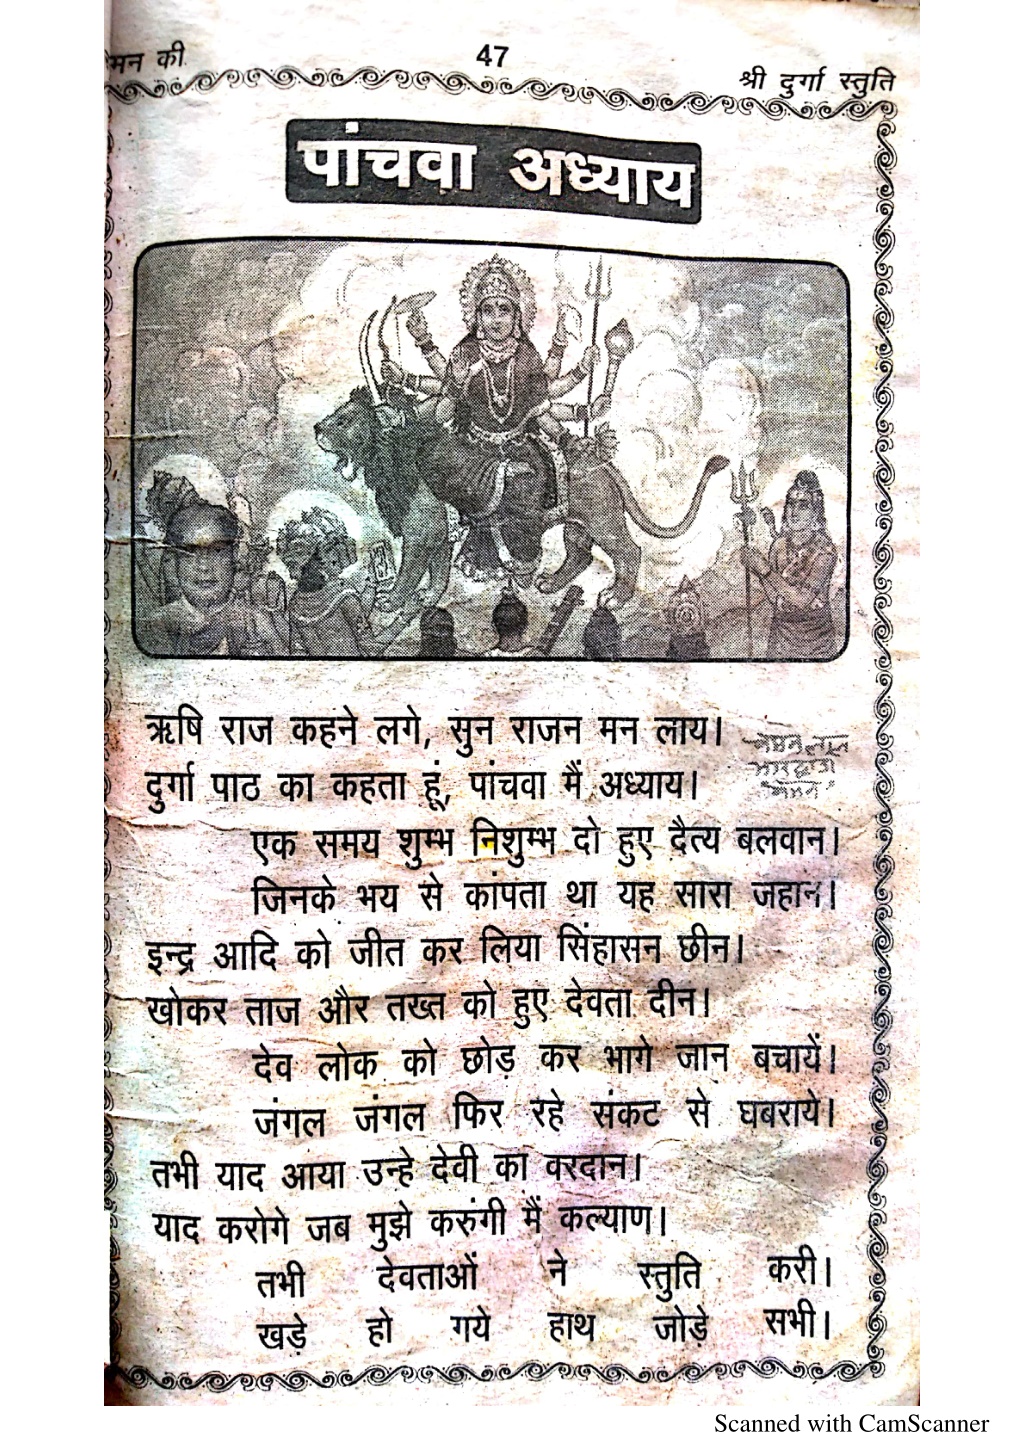 मन की
47
श्री दुर्गा स्तुति
पांचवा अध्याय
ऋषि राज कहने लगे, सुन राजन मन लाय।
दुर्गा पाठ का कहता हूं, पांचवा मैं अध्याय।
एक समय शुम्भ निशुम्भ दो हुए दैत्य बलवान।
जिनके भय से कांपता था यह सारा जहान।
इन्द्र आदि को जीत कर लिया सिंहासन छीन।
खोकर ताज और तख्त को हुए देवता दीन।
देव लोक को छोड़ कर भागे जान बचायें।
जंगल जंगल फिर रहे संकट से घबराये।
तभी याद आया उन्हे देवी का वरदान।
याद करोगे जब मुझे करुंगी मैं कल्याण।
तभी देवताओं ने स्तुति करी।
खड़े हो गये हाथ जोड़े सभी।
Scanned with CamScanner